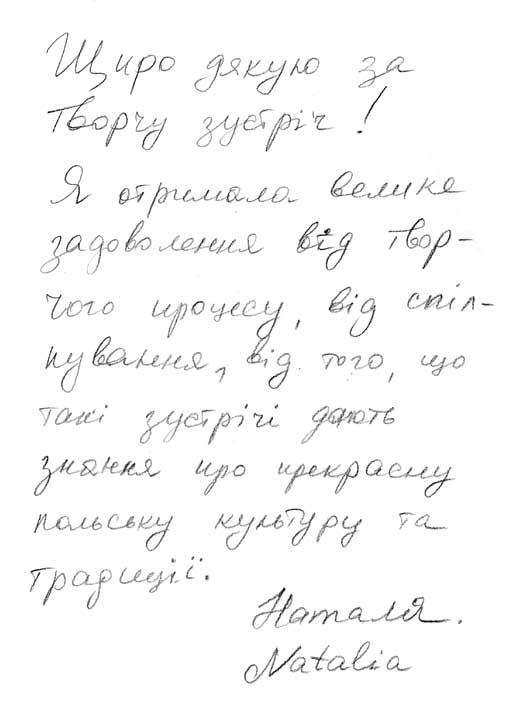 Щиро дякую за
творчу зустріч!
Я отримала велике
задоволення від твор-
чого процесу, від спіл-
кування, від того, що
такі зустрічі дають
знання про прекрасну
польську культуру та
традиції.
Наталя.
Natalia